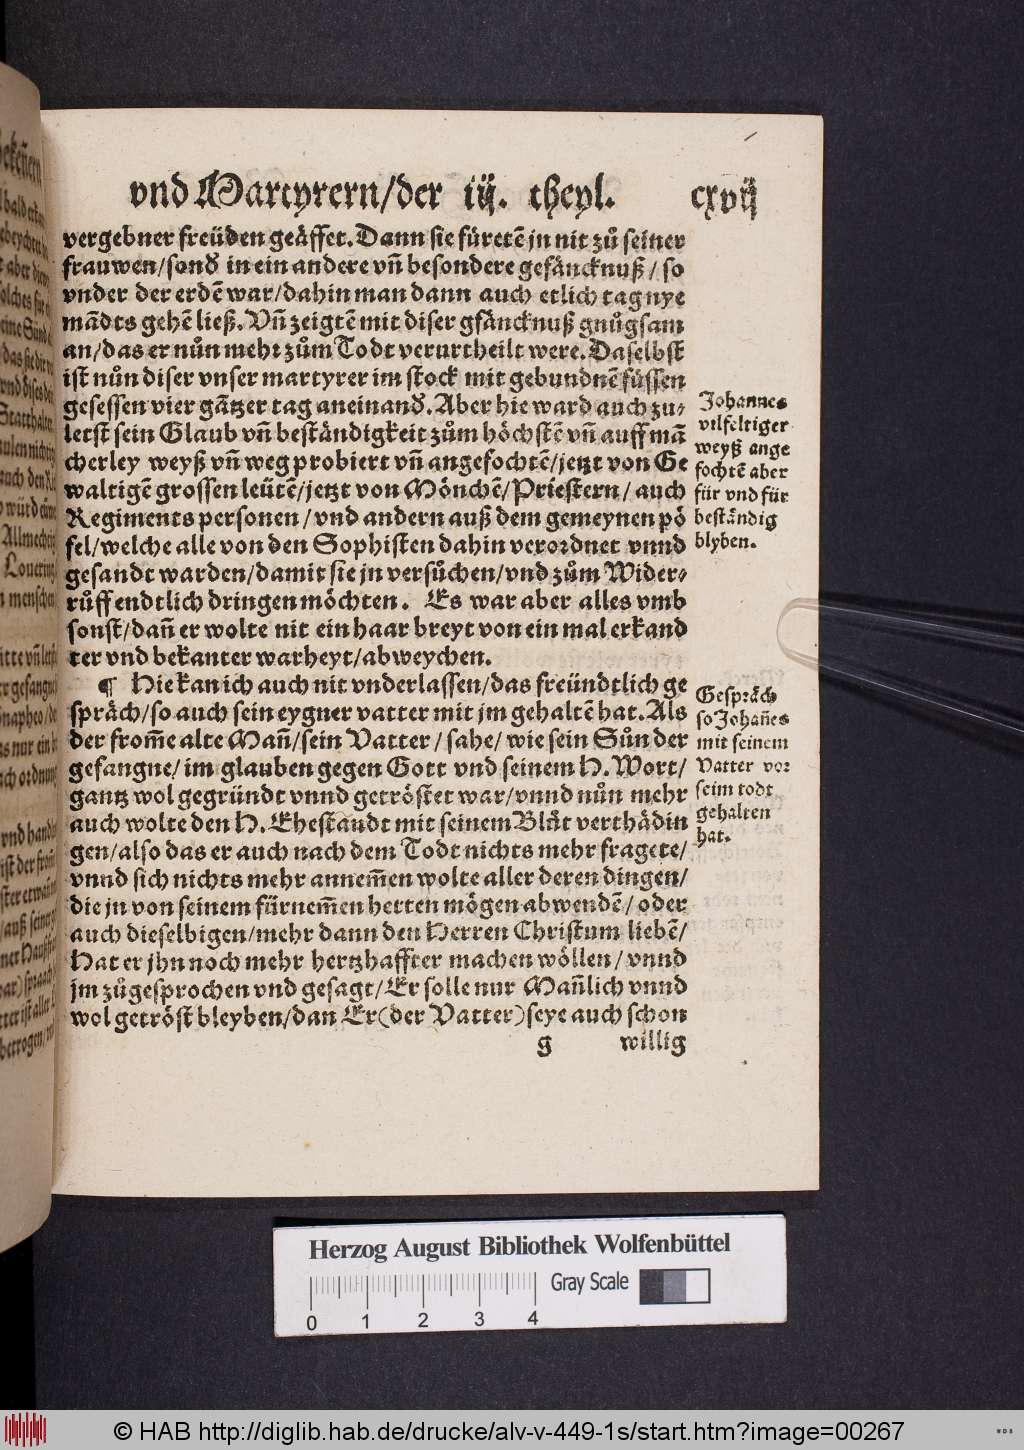 vnd Martyrern/der iij. theyl. cxvij
vergebner freüden geäffet. Dann sie füretē jn nit zů seiner
frauwen/sond̄ in ein andere vñ besondere gefäncknuß/ so
vnder der erdē war/dahin man dann auch etlich tag nye
mādts gehē ließ. Vñ zeigtē mit diser gfäncknuß gnůgsam
an/das er nůn mehr zům Todt verurtheilt were. Daselbst
ist nůn diser vnser martyrer im stock mit gebundnē füssen
gesessen vier gātzer tag aneinand̄. Aber hie ward auch zu-
letst sein Glaub vñ beständigkeit zům höchstē vñ auff mā
cherley weyß vñ weg probiert vñ angefochtē/jetzt von Ge
waltigē grossen leütē/jetzt von Mönchē/Priestern/ auch
Regiments personen/vnd andern auß dem gemeynen pö
fel/welche alle von den Sophisten dahin verordnet vnnd
gesandt warden/damit sie jn versůchen/vnd zům Wider-
růff endtlich dringen möchten. Es war aber alles vmb
sonst/dañ er wolte nit ein haar breyt von ein mal erkand
ter vnd bekanter warheyt/abweychen.
¶ Hie kan ich auch nit vnderlassen/das freündtlich ge
spräch/so auch sein eygner vatter mit jm gehaltē hat. Als
der from̄e alte Mañ/sein Vatter/ sahe/ wie sein Sůn der
gefangne/ im glauben gegen Gott vnd seinem H. Wort/
gantz wol gegründt vnnd getröstet war/vnnd nůn mehr
auch wolte den H. Ehestandt mit seinem Blůt verthädin
gen/also das er auch nach dem Todt nichts mehr fragete/
vnnd sich nichts mehr annem̄en wolte aller deren dingen/
die jn von seinem fürnem̄en hetten mögen abwendē/ oder
auch dieselbigen/mehr dann den Herren Christum liebē/
Hat er jhn noch mehr hertzhaffter machen wöllen/ vnnd
jm zůgesprochen vnd gesagt/ Er solle nur Mañlich vnnd
wol getröst bleyben/dan Er(der Vatter)seye auch schon
g willig
Johannes
vilfeltiger
weyß ange
fochtē aber
für vnd für
beständig
blyben.
Gespräch
so Johañes
mit seinem
Vatter vor
seim todt
gehalten
hat.
Herzog August Bibliothek Wolfenbüttel
Gray Scale
0 1 2 3 4
© HAB http://diglib.hab.de/drucke/alv-v-449-1s/start.htm?image=00267